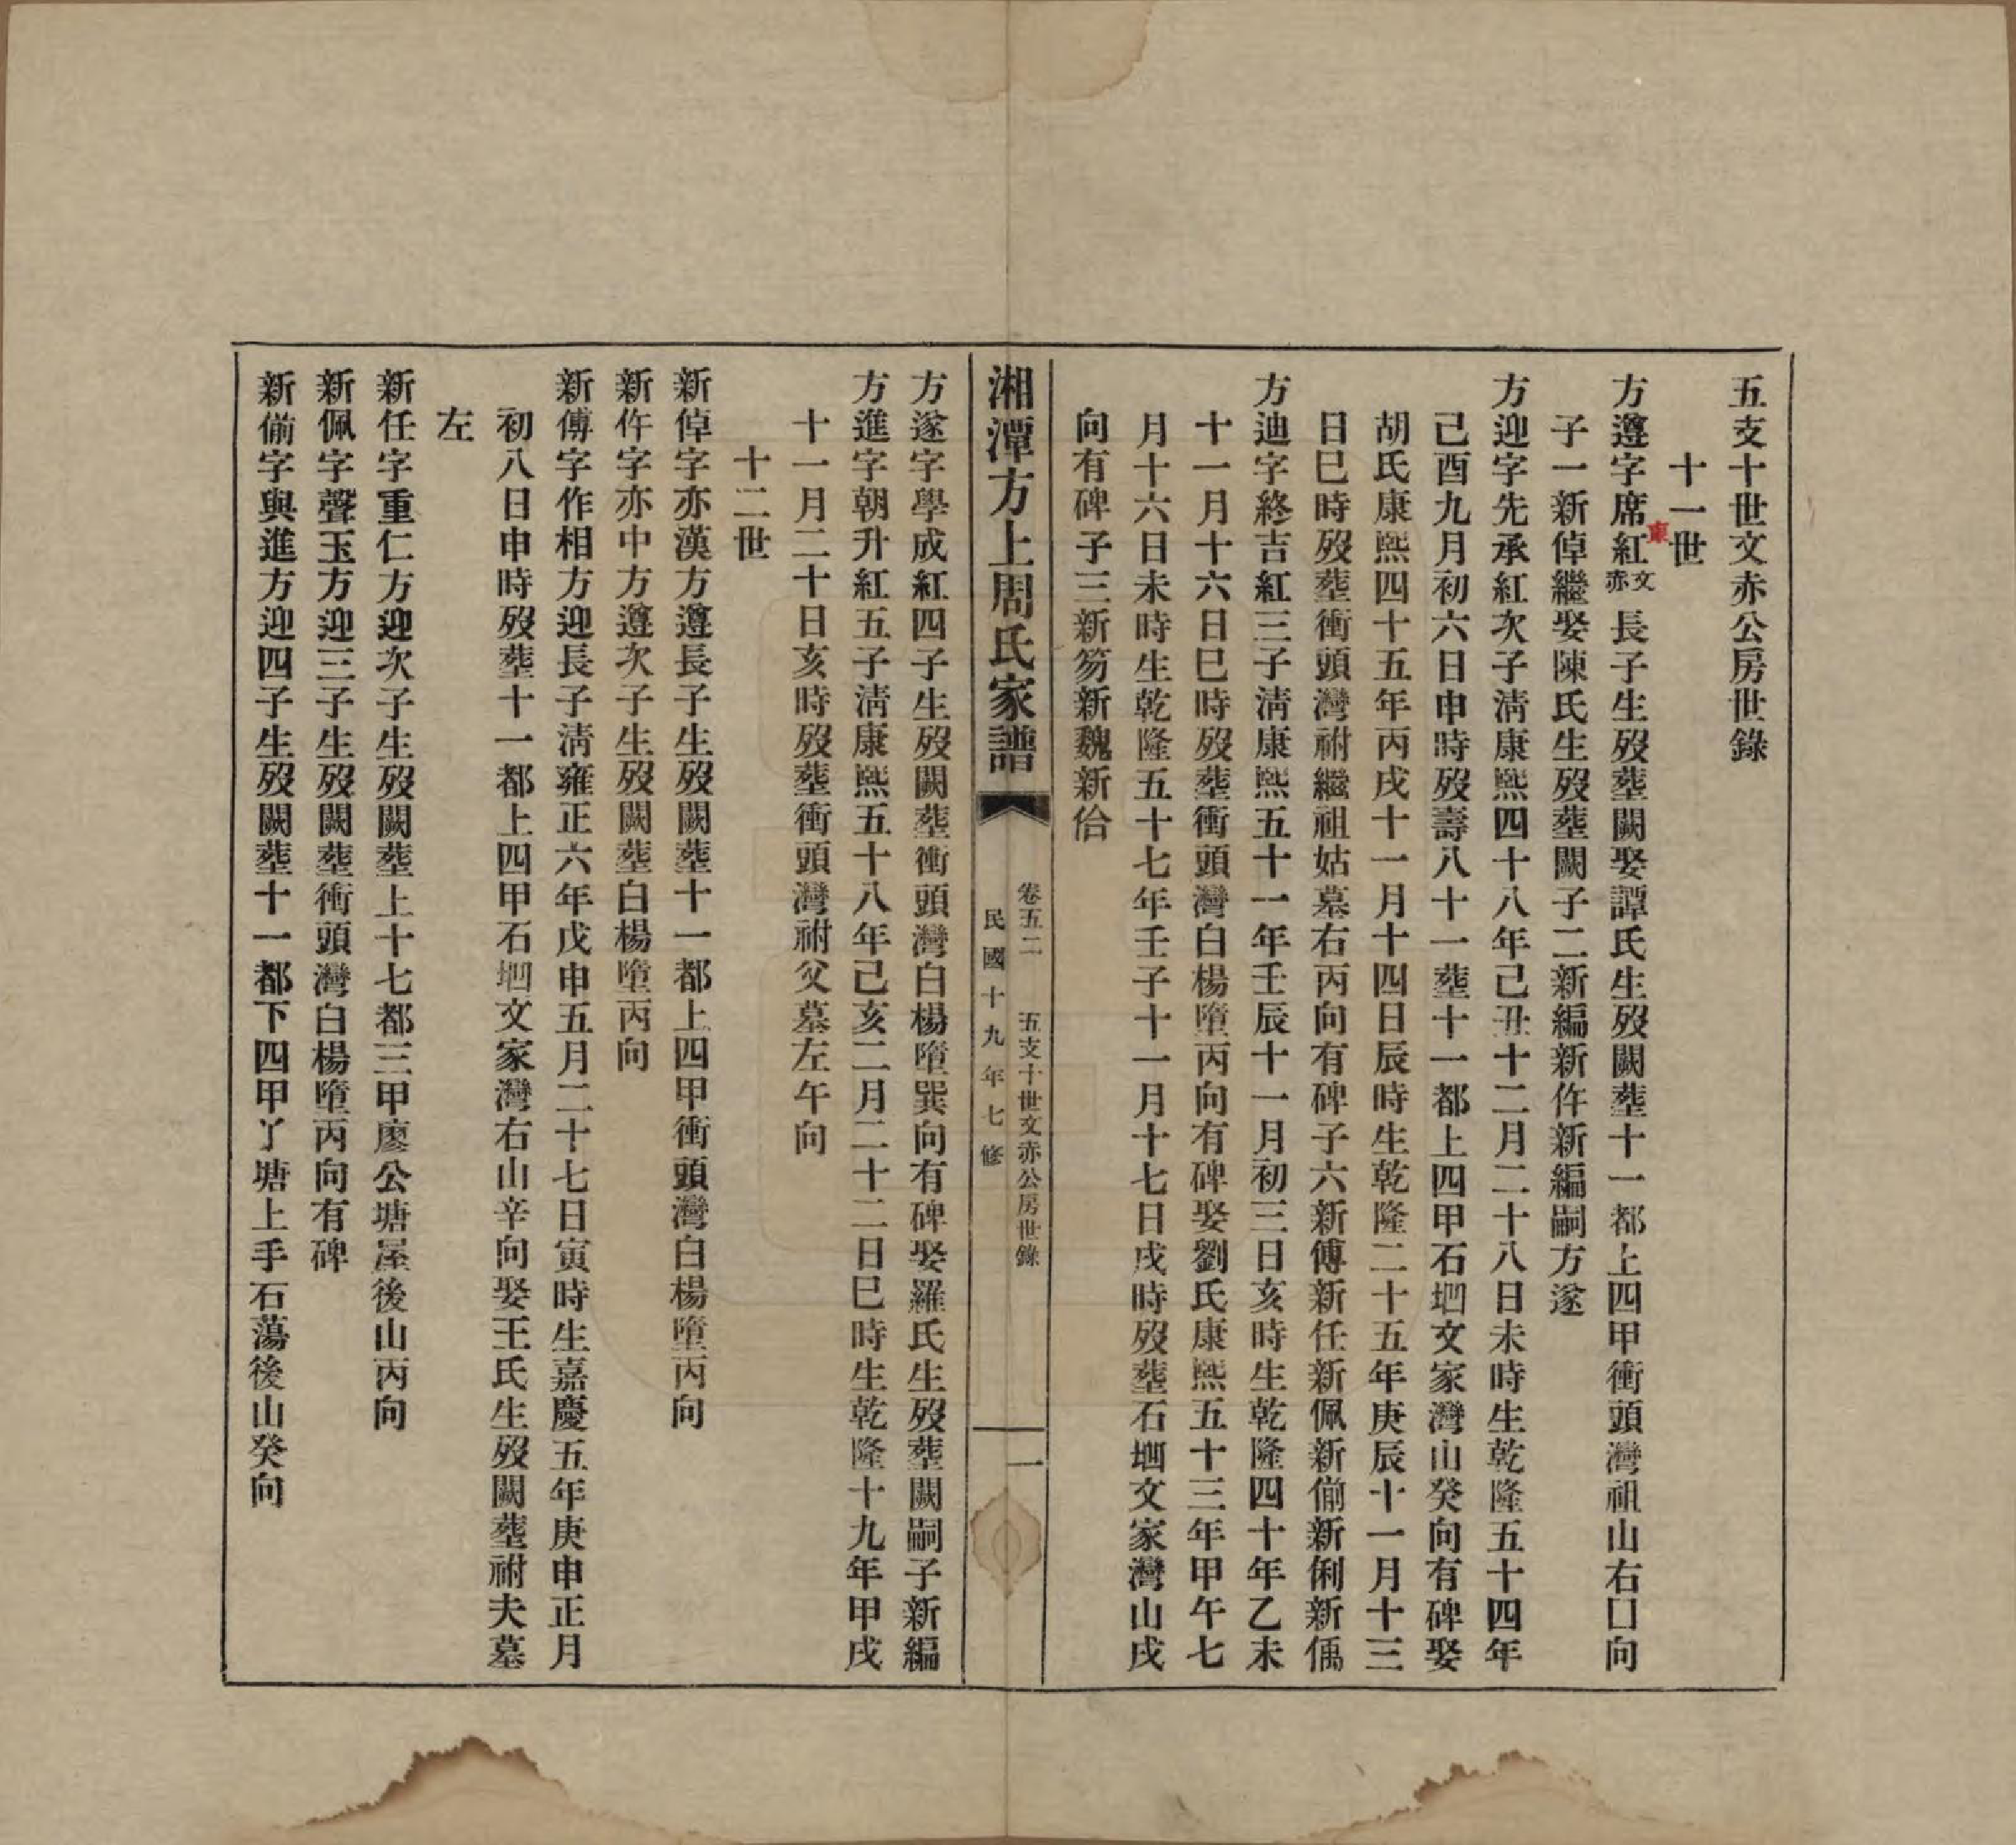 五支十世文赤公房世錄
十一世
方遵字席紅文赤長子生歿葬闕娶譚氏生歿闕葬十一都上四甲衝頭灣祖山右口向
東
子一新倬繼娶陳氏生歿葬闕子二新編新仵新編嗣方遂
方迎字先承紅次子淸康熙四十八年己丑十二月二十八日未時生乾隆五十四年
己酉九月初六日申時歿壽八十一葬十一都上四甲石㘰文家灣山癸向有碑娶
胡氏康熙四十五年丙戌十一月十四日辰時生乾隆二十五年庚辰十一月十三
日巳時歿葬衝頭灣祔繼祖姑墓右丙向有碑子六新傅新任新佩新偂新俐新偊
方迪字終吉紅三子淸康熙五十一年壬辰十一月初三日亥時生乾隆四十年乙未
十一月十六日巳時歿葬衝頭灣白楊墮丙向有碑娶劉氏康熙五十三年甲午七
月十六日未時生乾隆五十七年壬子十一月十七日戌時歿葬石㘰文家灣山戌
向有碑子三新笏新魏新佁
湘潭方上周氏家譜
卷五二 五支十世文赤公房世錄
民國十九年七修
一
方遂字學成紅四子生歿闕葬衝頭灣白楊墮巽向有碑娶羅氏生歿葬闕嗣子新編
方進字朝升紅五子淸康熙五十八年己亥二月二十二日巳時生乾隆十九年甲戌
十一月二十日亥時歿葬衝頭灣祔父墓左午向
十二世
新倬字亦漢方遵長子生歿闕葬十一都上四甲衝頭灣白楊墮丙向
新仵字亦中方遵次子生歿闕葬白楊墮丙向
新傅字作相方迎長子淸雍正六年戊申五月二十七日寅時生嘉慶五年庚申正月
初八日申時歿葬十一都上四甲石㘰文家灣右山辛向娶王氏生歿闕葬祔夫墓
左
新任字重仁方迎次子生歿闕葬上十七都三甲廖公塘屋後山丙向
新佩字聲玉方迎三子生歿闕葬衝頭灣白楊墮丙向有碑
新偂字與進方迎四子生歿闕葬十一都下四甲丫塘上手石蕩後山癸向